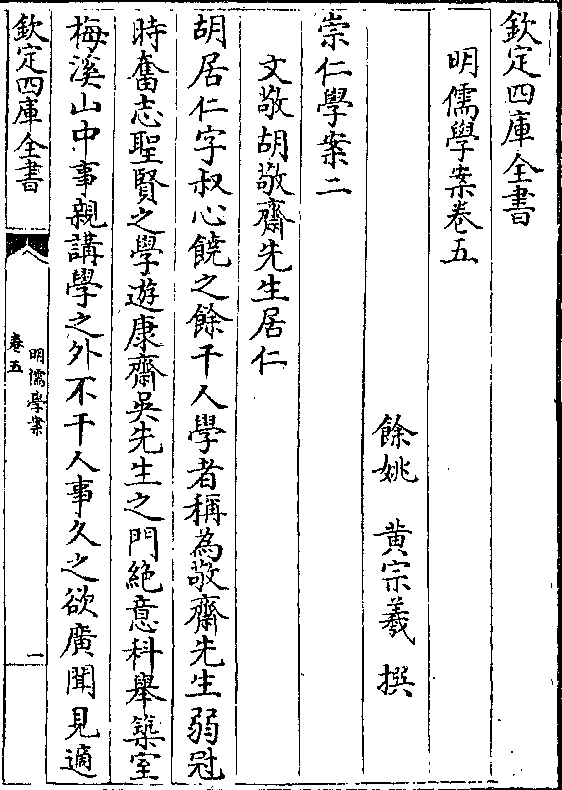 欽定四庫全書
明儒學案卷五
餘姚 黄宗羲 撰
崇仁學案二
文敬胡敬齋先生居仁
胡居仁字叔心饒之餘干人學者稱為敬齋先生弱冠
時奮志聖賢之學遊康齋吳先生之門絶意科舉築室
梅溪山中事親講學之外不干人事久之欲廣聞見適
欽定四庫全書
明儒學案
卷五
一